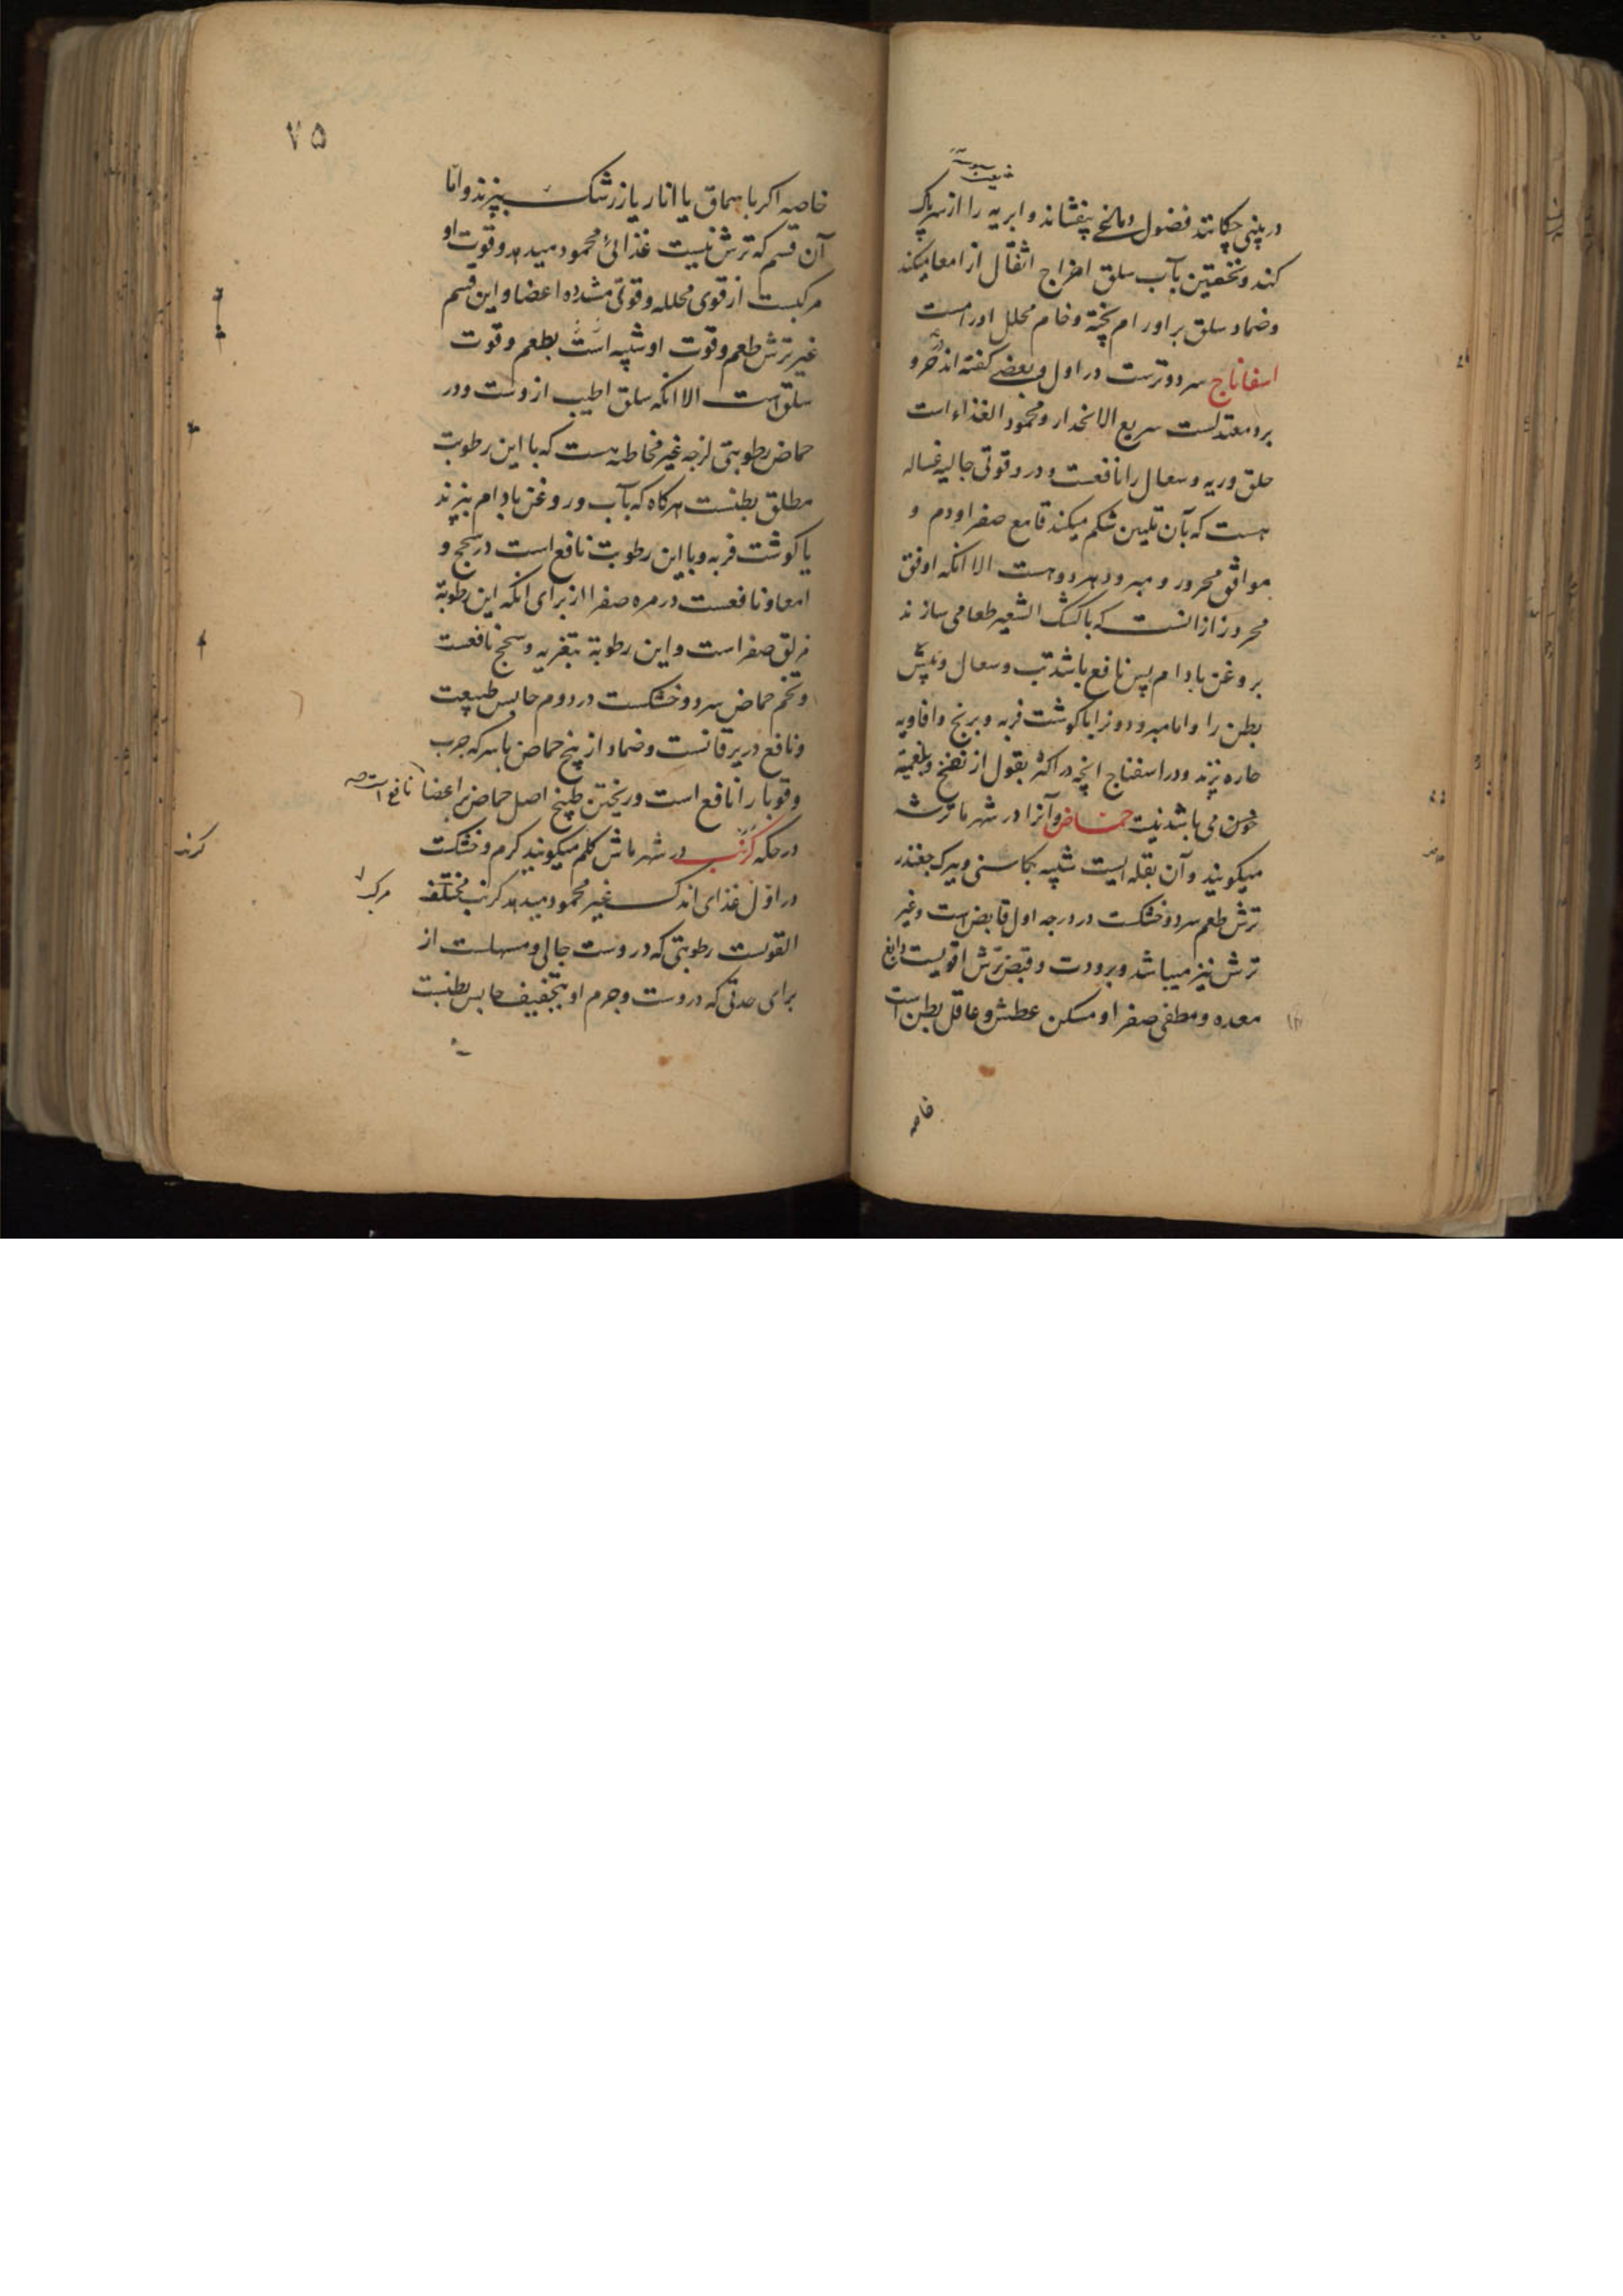 در بینی چکانند فضول دماغی بنفشاند و ابریه را از سر پاک
کند و تحقین بآب سلق اخراج اثقال از امعا میکند
و ضماد سلق بر اورام پخته و خام محلل اورامست
اسفاناج سرد و ترست در اول و بعضی گفته اند در حر و
برد معتدلست سریع الانحدار و محمود الغذاء است
حلق و ریه و سعال را نافعست و در و قوتی جالیه غساله
هست که بآن تلیین شکم میکند قامع صفرا و دم و
موافق محرور و مبرود هر دو هست الا انکه اوفق
محرورا ز انست که با کشک الشعیر طعامی سازند
بروغن بادام پس نافع باشد تب و سعال و یبس
بطن را و اما مبرودو نرا با کوشت فربه و برنج و افاویه
حاره پزند و در اسفناج انچه در اکثر بقول از نفخ و بلغمیة
می باشد نیست حماض و آنرا در شهر ما ترشه
میکویند و آن بقله ایست شبیه بکاسنی و ببرک چغندر
ترش طعم سرد و خشکست در درجه اول قابض است و غیر
ترش نیز میباشد و برودت و قبض ترش اقویست دابغ
معده و مطفی صفرا و مسکن عطش و عاقل بطن است
خاصه
۷۵
خاصه اکر با سماق یا انار یا زرشک بپزند و اما
آن قسم که ترش نیست غذائی محمود میدهد و قوت او
مرکبست از قوی محلله و قوتی مشدده اعضا و این قسم
غیر ترش طعم و قوت او شبیه است بطعم و قوت
سلق است الا انکه سلق اطیب ازوست و در
حماض رطوبتی لزجه غیر مخاطیه هست که با این رطوبت
مطلق بطنست هر کاه که بآب و روغن بادام بپزند
یا کوشت فربه و با این رطوبت نافع است در سحج و
امعا و نافعست در مره صفرا از برای انکه این رطوبة
مزلق صفرا است و این رطوبة بتغریه و سحج نافعست
و تخم حماض سرد و خشکست در دوم حابس طبیعت
و نافع در یرقانست و ضماد از بیخ حماض با سرکه جرب
و قوبا را نافع است و ریختن طبیخ اصل حماض بر اعضا نافع است
در حکه کرنب در شهر ماش کلم میکویند کرم و خشکست
در اول غذای اندک غیر محمود میدهد کرنب مختلف
القویست رطوبتی که دروست جالی و مسهلست از
برای حدتی که دروست و جرم او بتجفیف حابس بطنست